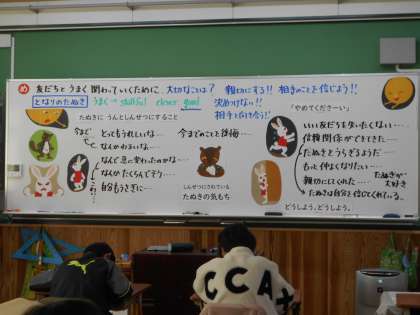 め 友だちとうまく関わっていくために、大切なことは? 親切にする!! 相手のことを信じよう!!
となりのたぬき うまく→skillful clever good 決めつけない!!
相手と向き合う!!
たぬきに うんとしんせつにすること
「やめてくださーい」
今まで とってもうれしいな…
なんかわるいな…
なんで急に変わったのかな…
なんかたくらんでそう…
自分もうさぎに…
今までのことを後悔…
しんせつにされている
たぬきの気もち
いい友だちを失いたくない…
信頼関係ができてきた…
たぬきをうらぎるようだ…
もっと仲よくなりたい…
親切にしてくれた…
たぬきが大好き
たぬきは自分を信じてくれている。
どうしよう、どうしよう。
CCA